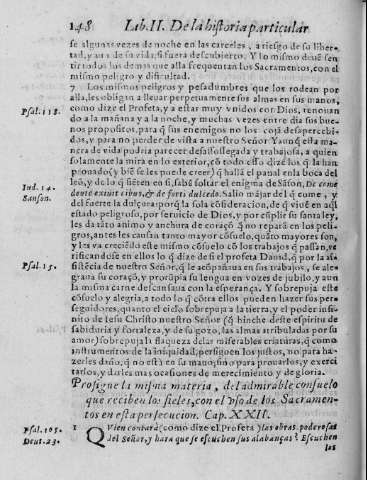 148 Lib. II. De la historia particular
se algunas vezes de noche en las carceles, a riesgo de su liber-
tad, y aun de su vida, si fuera descubierto. Y lo mismo deuē sen
tir todos los demas que alla frequentan los Sacramentos, con el
mismo peligro y dificultad.
7 Los mismos peligros y pesadumbres que los rodean por
Psal. 118.
alla, les obligan a lleuar perpetuamente sus almas en sus manos,
como dize el Profeta, y a estar muy vnidos con Dios, renouan
do a la mañana y a la noche, y muchas vezes entre dia sus bue-
nos propositos, para q̄ sus enemigos no los cojā desapercebi-
dos, y para no perder de vista a nuestro Señor Y aunq̄ esta ma-
nera de vida podria parecer desassossegada y trabajosa, a quien
solamente la mira en lo exterior, cō todo esso dizē los q̄ la han
prouado (y biē se les puede creer) q̄ hallā el panal en la boca del
Iud. 14.
Sanson.
leō, y de lo q̄ siētē en si, sabē soltar el enigma de Sāson, De come
dente exiuit cibus, & de forti dulcedo. Salio mājar del q̄ come, y
del fuerte la dulçura: porq̄ la sola cōsideracion, de q̄ viuē en aq̄l
estado peligroso, por seruicio de Dios, y por cūplir su santa ley,
les da tāto animo y anchura de coraçō q̄ no reparā en los peli-
gros, antes les causan tanto mayor cōsuelo, quāto mayores son,
y les va creciēdo este mismo cōsuelo cō los trabajos q̄ passan, ve
rificandose en ellos lo q̄ dize de si el profeta Dauid, q̄ por la as-
Psal. 15.
sistēcia de nuestro Señor, q̄ le acōpañaua en sus trabajos, se ale-
graua su coraçō, y prorūpia su lengua en vozes de jubilo, y aun
la misma carne descansaua con la esperança. Y sobrepuja este
cōsuelo y alegria, a todo lo q̄ cōtra ellos pueden hazer sus per-
seguidores, quanto el cielo sobrepuja a la tierra, y el poder infi-
nito de Iesu Christo nuestro Señor (q̄ hinche deste espiritu de
sabiduria y fortaleza, y de su gozo, las almas atribuladas por su
amor) sobrepuja la flaqueza de las miserables criaturas, q̄ como
instrumentos de la iniquidad, persiguen los justos, no para ha-
zerles daño, q̄ no estā en su mano, sino para prouarlos, y exerci
tarlos, y darles mas ocasiones de merecimiento y de gloria.
Prosigue la misma materia, del admirable consuelo
que reciben los fieles, con el vso de los Sacramen-
tos en esta persecucion. Cap. XXII.
Psal. 105.
Deut. 23.
1 QVien contarà (como dize el Profeta) las obras poderosas
del Señor, y hara que se escuchen sus alabanças? Escuchen
los